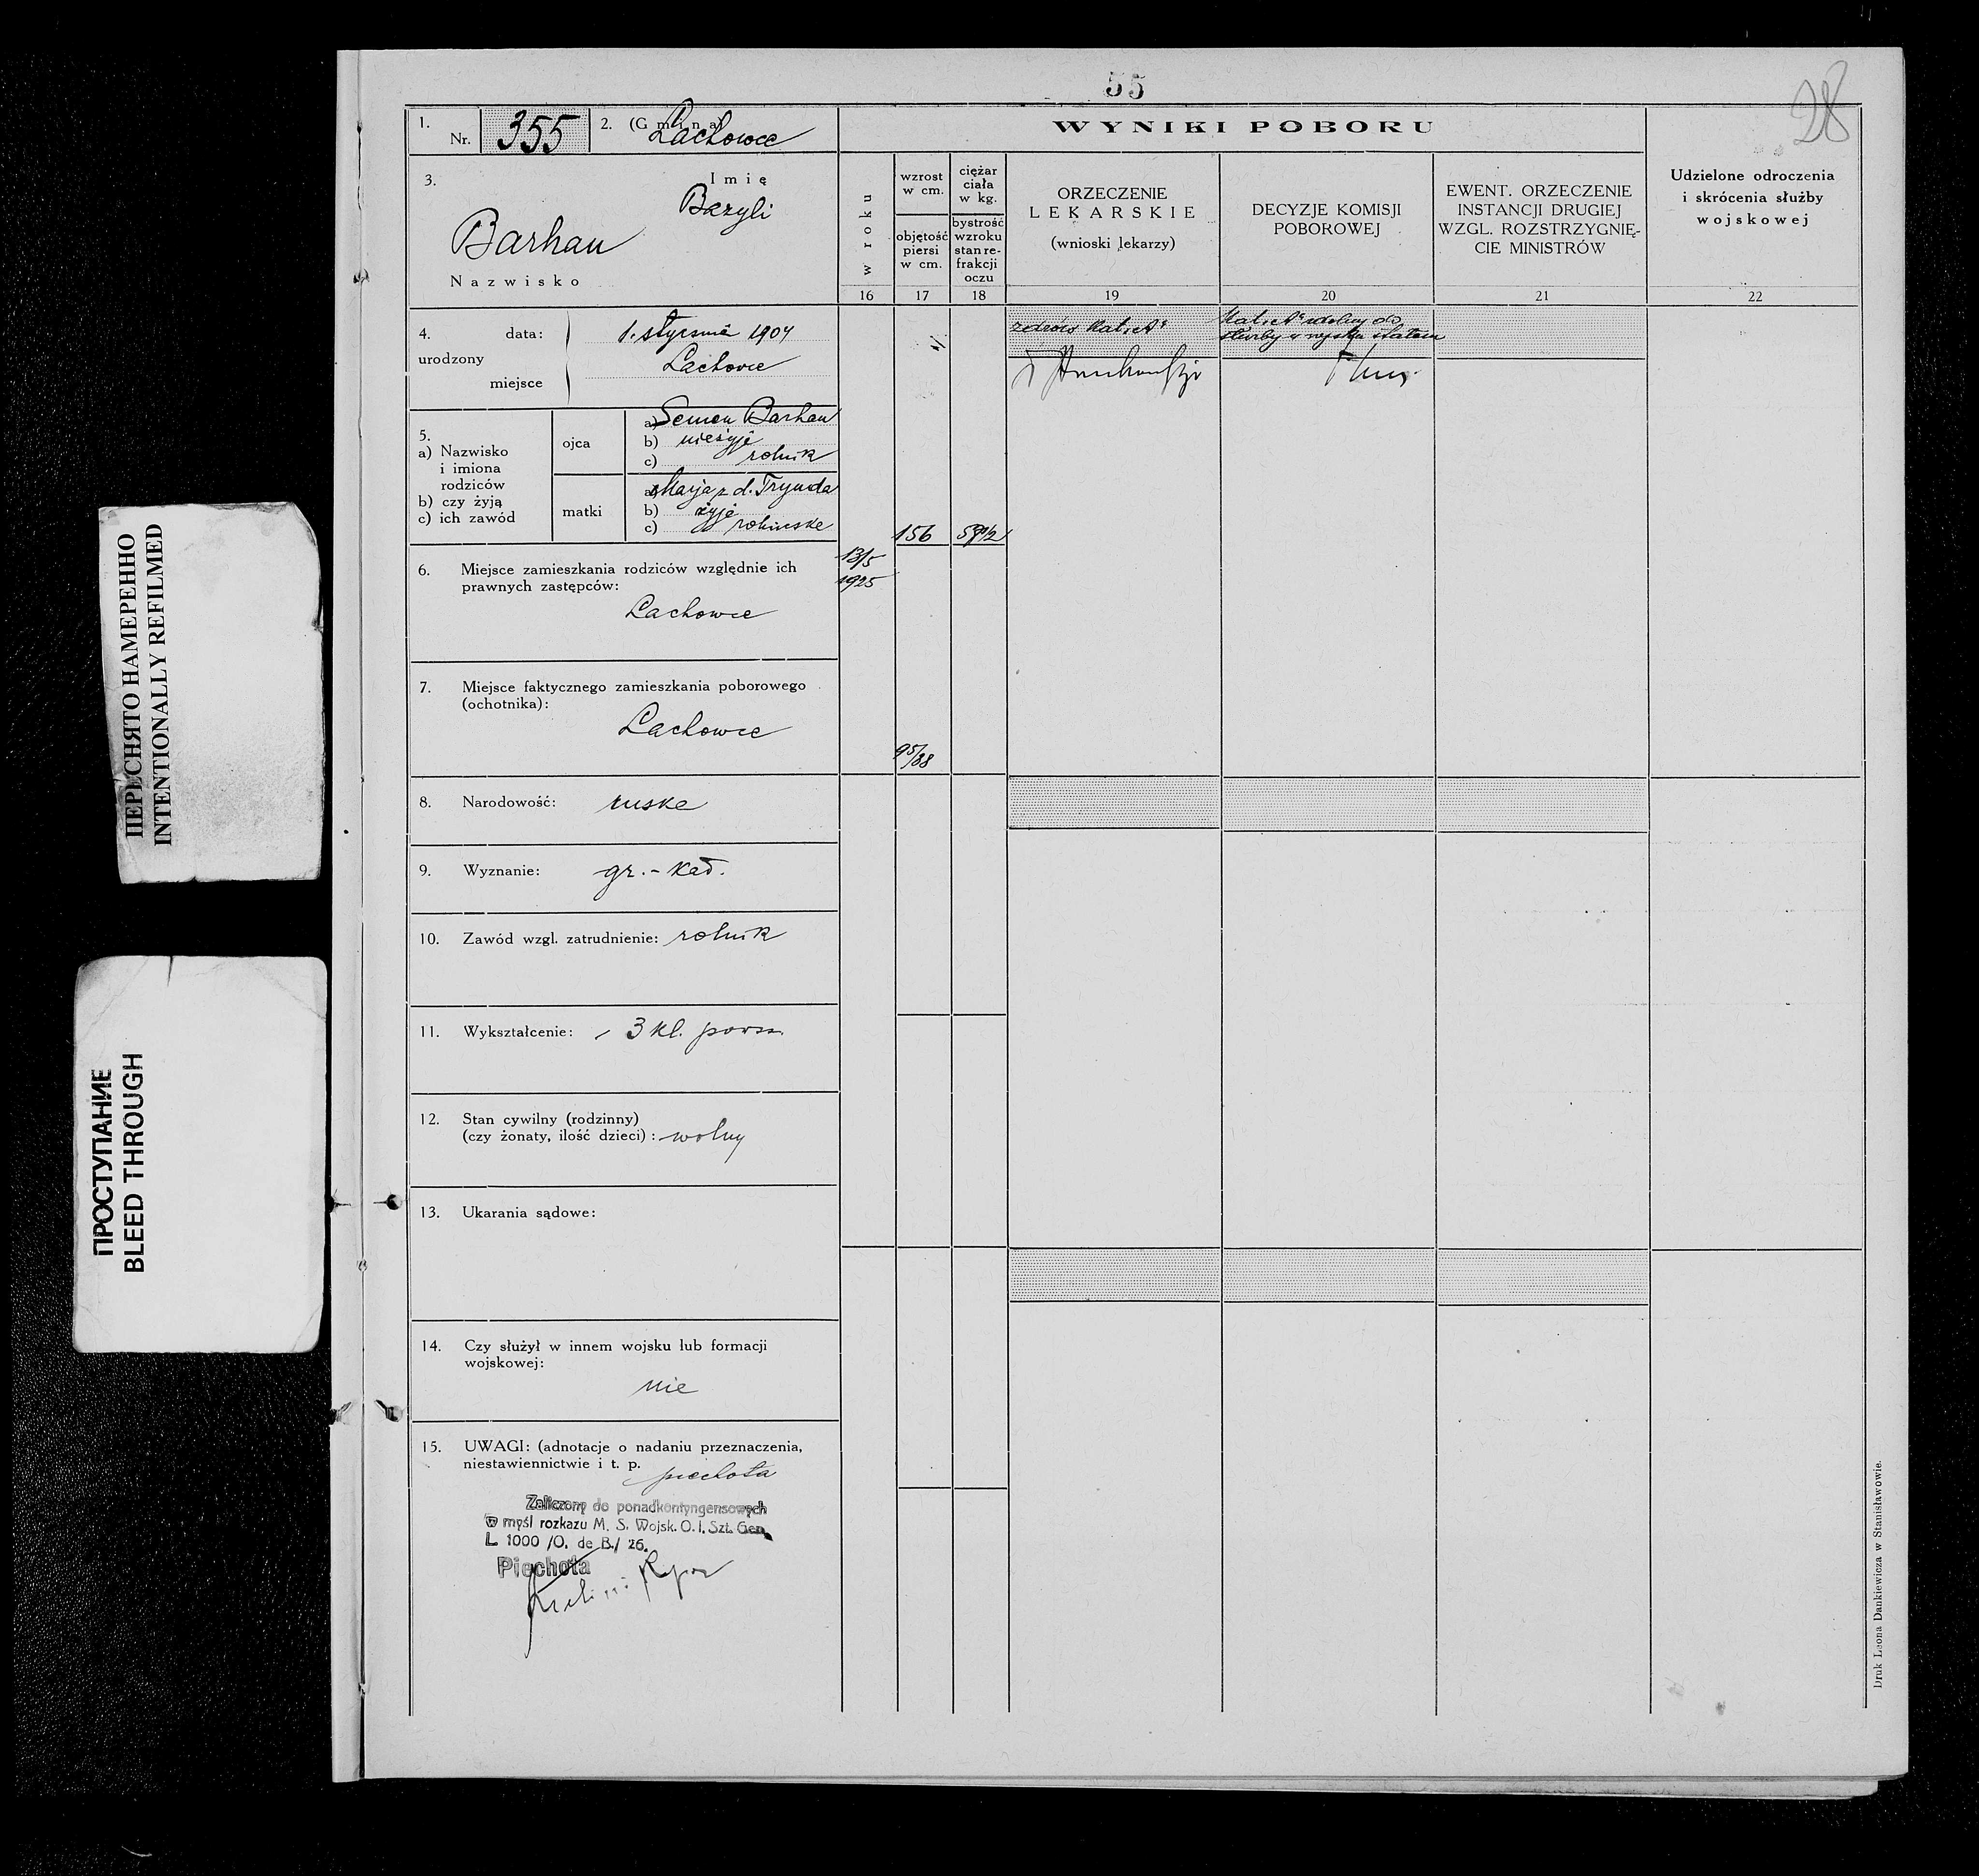 55
28
1.
Nr. 355
2. (Gmina) Lachowce
WYNIKI POBORU
3.
Imię
Bazyli
Barhau
Nazwisko
w roku
wzrost
w cm.
objętość
piersi
w cm.
ciężar
ciała
w kg.
bystrość
wzroku
stan re-
frakcji
oczu
ORZECZENIE
LEKARSKIE
(wnioski lekarzy)
DECYZJE KOMISJI
POBOROWEJ
EWENT. ORZECZENIE
INSTANCJI DRUGIEJ
WZGL. ROZSTRZYGNIĘ-
CIE MINISTRÓW
Udzielone odroczenia
i skrócenia służby
wojskowej
16 17 18 19 20 21 22
4.
urodzony
data: 1. stycznia 1904
miejsce Lachowce
zdrów Kat. "A"
Kat. "A" zdolny do
służby w wojsku stałem
5.
a) Nazwisko
i imiona
rodziców
b) czy żyją
c) ich zawód
ojca
a) Semen Barhau
b) nieżyje
c) rolnik
matki
a) Marja z d. Trynda
b) żyje
c) rolniczka
156
13/5
1925
95/88
6. Miejsce zamieszkania rodziców względnie ich
prawnych zastępców:
Lachowce
7. Miejsce faktycznego zamieszkania poborowego
(ochotnika):
Lachowce
8. Narodowość: ruska
9. Wyznanie: gr.-kat.
10. Zawód wzgl. zatrudnienie: rolnik
11. Wykształcenie: 3 kl. powsz.
12. Stan cywilny (rodzinny)
(czy żonaty, ilość dzieci): wolny
13. Ukarania sądowe:
14. Czy służył w innem wojsku lub formacji
wojskowej:
nie
15. UWAGI: (adnotacje o nadaniu przeznaczenia,
niestawiennictwie i t. p.
piechota
Zaliczony do ponadkontyngensowych
w myśl rozkazu M. S. Wojsk. O. I. Szt. Gen.
L. 1000 /O. de B./ 26.
Piechota
Druk Leona Dankiewicza w Stanisławowie.
ПЕРЕСНЯТО НАМЕРЕННО
INTENTIONALLY REFILMED
ПРОСТУПАНИЕ
BLEED THROUGH